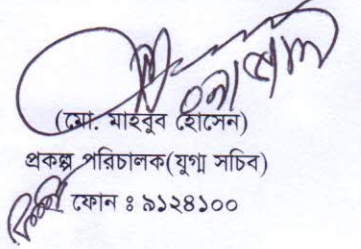 (মো. মাহবুব হোসেন)
প্রকল্প পরিচালক(যুগ্ম সচিব)
ফোন ঃ ৯১২৪১০০